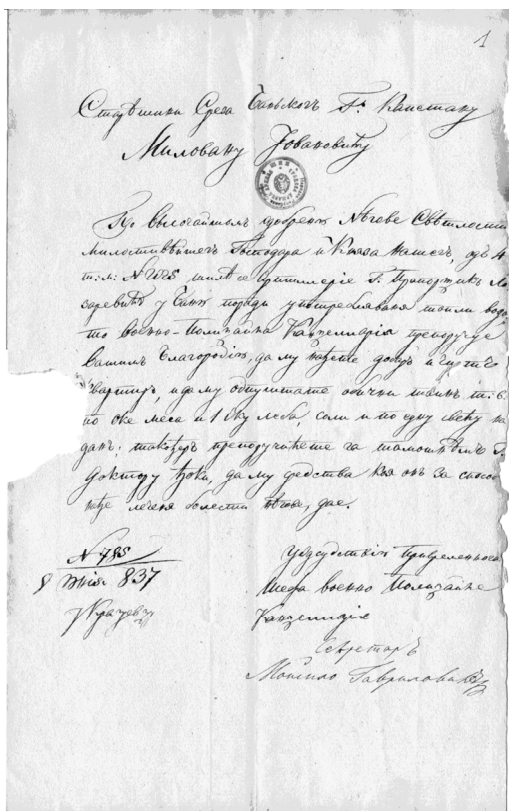 1
Старѣшини Среза Баньскогъ Гⁿ. Капетану
Миловану Јовановићу
По высочайшемъ одобреню Нѣгове Свѣтлости
милостивѣйшегъ Господара и Княза нашегъ, одъ 4
т: м: № шилѣ се Артиллеріе Г. Прапорщикъ Ла
заревићъ у Баню поради употреблѣваня топли вода,
то Военно-Полицайна Канцелларія препоручує
Вашемъ Благородію, да му нађете добаръ и
квартиръ, и да му обпуштате обични таинъ т: є:
по оке меса и 1 оку леба, соли и по єдну свећу на
данъ; такођеръ препоручићете га тамошнѣмъ Г.
Доктору да му средства коя онъ за способ
лѣченя болести нѣгове, дає.
№ 785
8 Юнія 837
у Крагуевцу
у одсудствію Опредѣленнога
Шефа Военно Полицайне
Канцелларіе
Секретаръ
Гавриловићъ